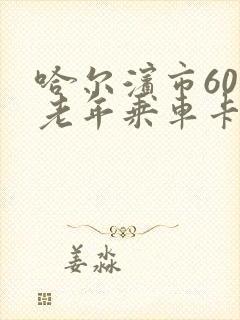 哈尔滨市60
老年乘车卡
姜淼